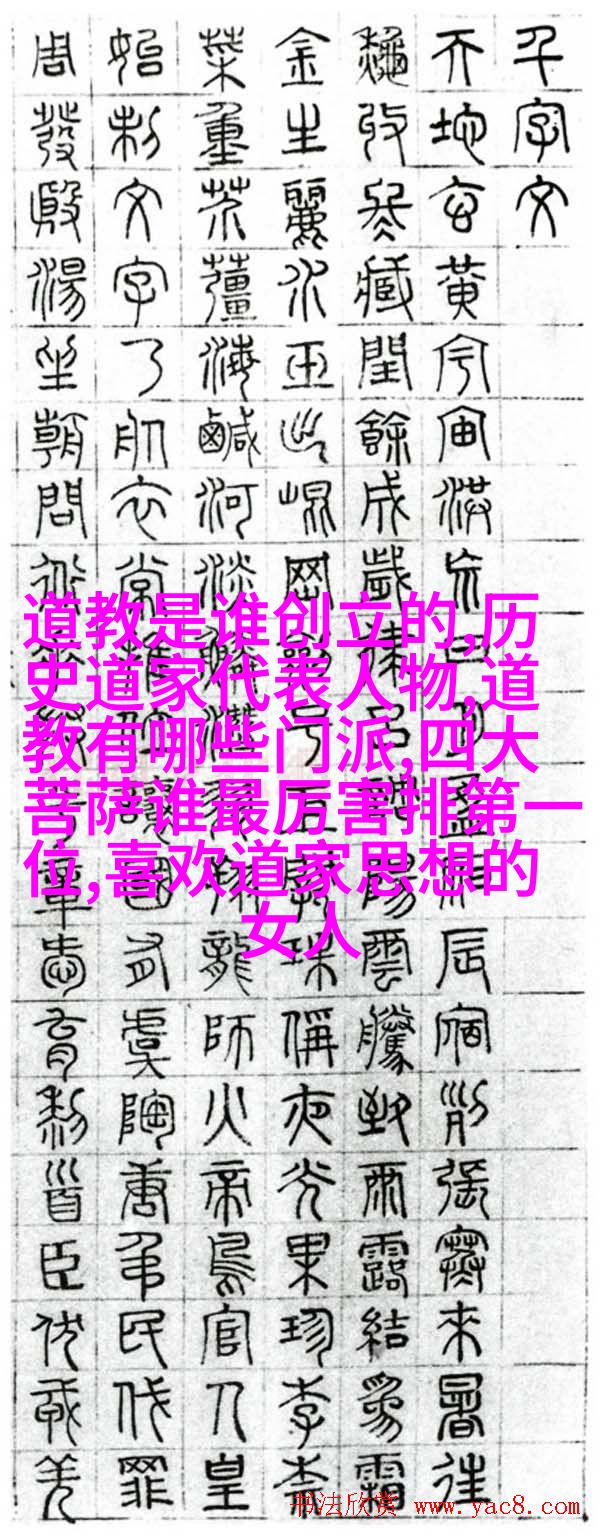 千字文
天地玄黃宇宙洪荒日月盈昃辰宿列張寒來暑往
秋收冬藏閏餘成歲律呂調陽雲騰致雨露結為霜
金生麗水玉出崑岡劍号巨闕珠稱夜光果珍李柰
菜重芥薑海鹹河淡鱗潛羽翔龍師火帝鳥官人皇
始制文字乃服衣裳推位讓國有虞陶唐弔民伐罪
周發殷湯坐朝問道垂拱平章愛育黎首臣伏戎羌
道教是谁创立的,历
史道家代表人物,道
教有哪些门派,四大
菩萨谁最厉害排第一
位,喜欢道家思想的
女人
书法欣赏 www.yac8.com